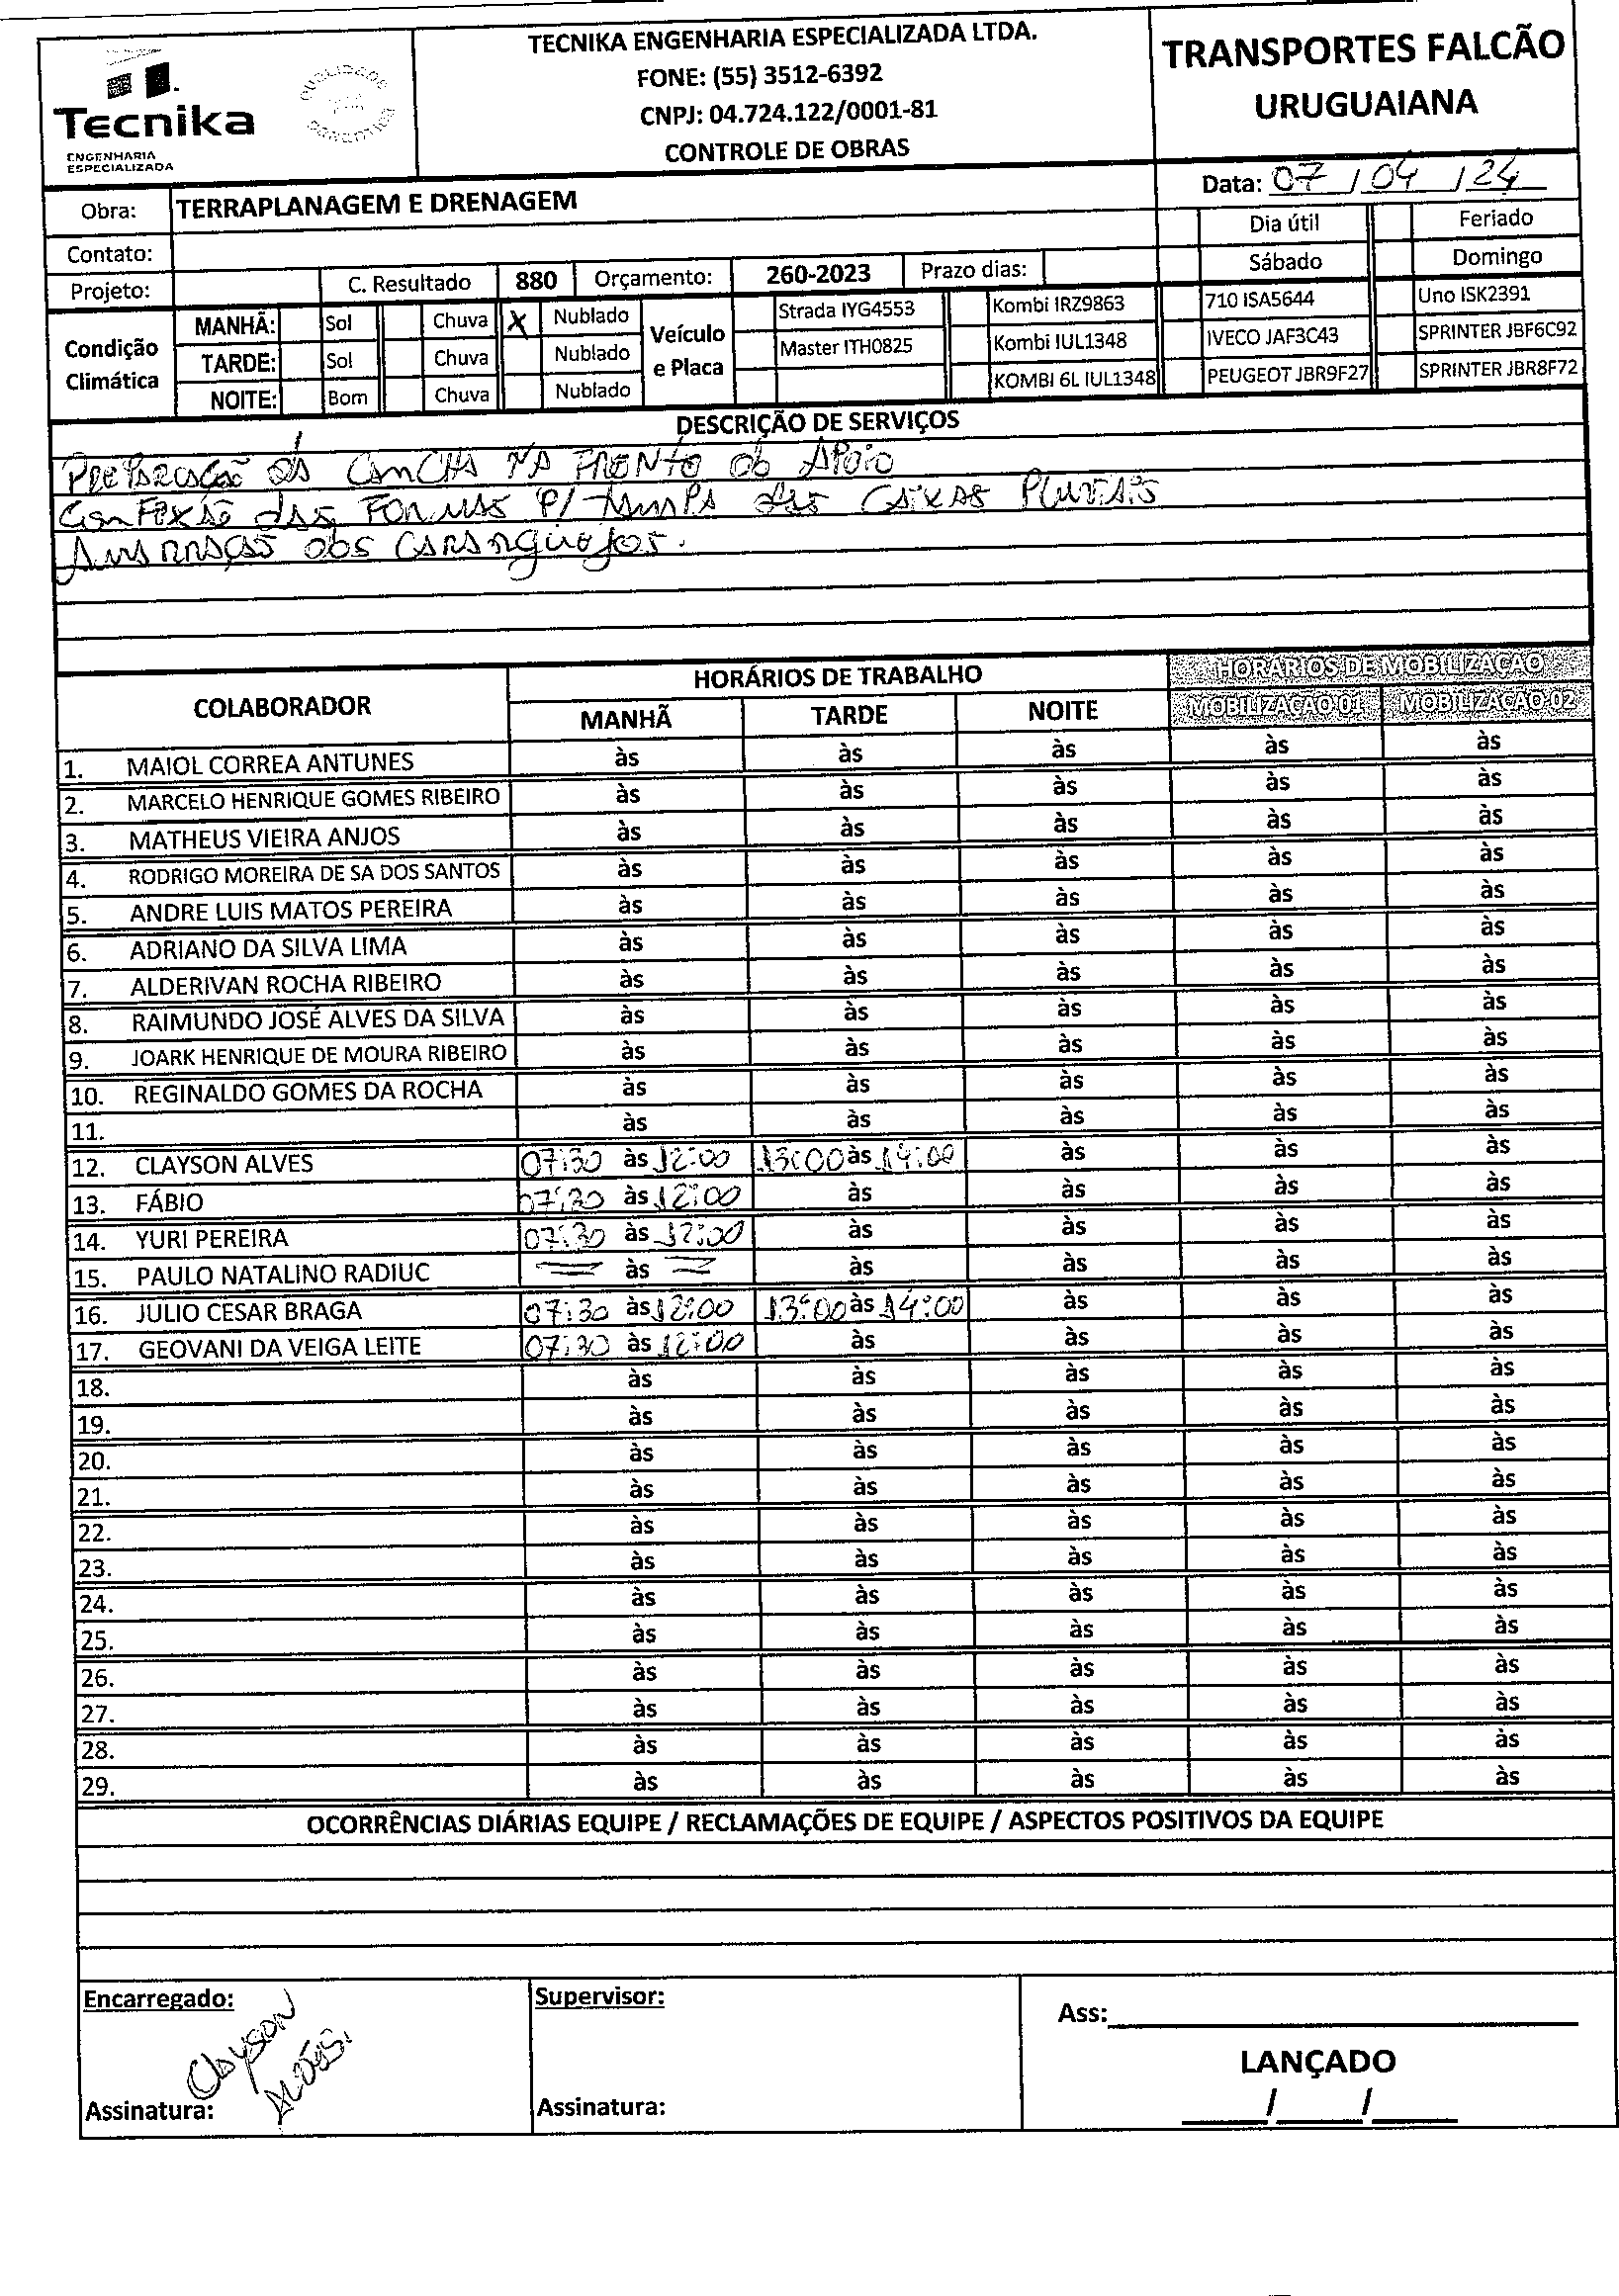 Tecnika
ENGENHARIA
ESPECIALIZADA
QUALIDADE
TECNIKA ENGENHARIA ESPECIALIZADA LTDA.
FONE: (55) 3512-6392
CNPJ: 04.724.122/0001-81
CONTROLE DE OBRAS
TRANSPORTES FALCÃO
URUGUAIANA
Data: 07 / 04 / 24
Obra: TERRAPLANAGEM E DRENAGEM
Dia útil Feriado
Contato:
Sábado Domingo
Projeto: C. Resultado 880 Orçamento: 260-2023 Prazo dias:
Condição Climática
MANHÃ: Sol Chuva X Nublado
TARDE: Sol Chuva Nublado
NOITE: Bom Chuva Nublado
Veículo e Placa
Strada IYG4553 Kombi IRZ9863 710 ISA5644 Uno ISK2391
Master ITH0825 Kombi IUL1348 IVECO JAF3C43 SPRINTER JBF6C92
KOMBI 6L IUL1348 PEUGEOT JBR9F27 SPRINTER JBR8F72
DESCRIÇÃO DE SERVIÇOS
Preparação da cancha na frente do apoio
Confexão das formas p/ tampa das caixas pluviais
Amarração dos caranguejos.
COLABORADOR HORÁRIOS DE TRABALHO HORÁRIOS DE MOBILIZAÇÃO
MANHÃ TARDE NOITE MOBILIZAÇÃO 01 MOBILIZAÇÃO 02
1. MAIOL CORREA ANTUNES às às às às às
2. MARCELO HENRIQUE GOMES RIBEIRO às às às às às
3. MATHEUS VIEIRA ANJOS às às às às às
4. RODRIGO MOREIRA DE SA DOS SANTOS às às às às às
5. ANDRE LUIS MATOS PEREIRA às às às às às
6. ADRIANO DA SILVA LIMA às às às às às
7. ALDERIVAN ROCHA RIBEIRO às às às às às
8. RAIMUNDO JOSÉ ALVES DA SILVA às às às às às
9. JOARK HENRIQUE DE MOURA RIBEIRO às às às às às
10. REGINALDO GOMES DA ROCHA às às às às às
11. às às às às às
12. CLAYSON ALVES 07:30 às 12:00 13:00 às 14:00 às às às
13. FÁBIO 07:30 às 12:00 às às às às
14. YURI PEREIRA 07:30 às 12:00 às às às às
15. PAULO NATALINO RADIUC às às às às às
16. JULIO CESAR BRAGA 07:30 às 12:00 13:00 às 14:00 às às às
17. GEOVANI DA VEIGA LEITE 07:30 às 12:00 às às às às
18. às às às às às
19. às às às às às
20. às às às às às
21. às às às às às
22. às às às às às
23. às às às às às
24. às às às às às
25. às às às às às
26. às às às às às
27. às às às às às
28. às às às às às
29. às às às às às
OCORRÊNCIAS DIÁRIAS EQUIPE / RECLAMAÇÕES DE EQUIPE / ASPECTOS POSITIVOS DA EQUIPE
Encarregado:
Clayson
Alves
Assinatura:
Supervisor:
Assinatura:
Ass:
LANÇADO
/ /